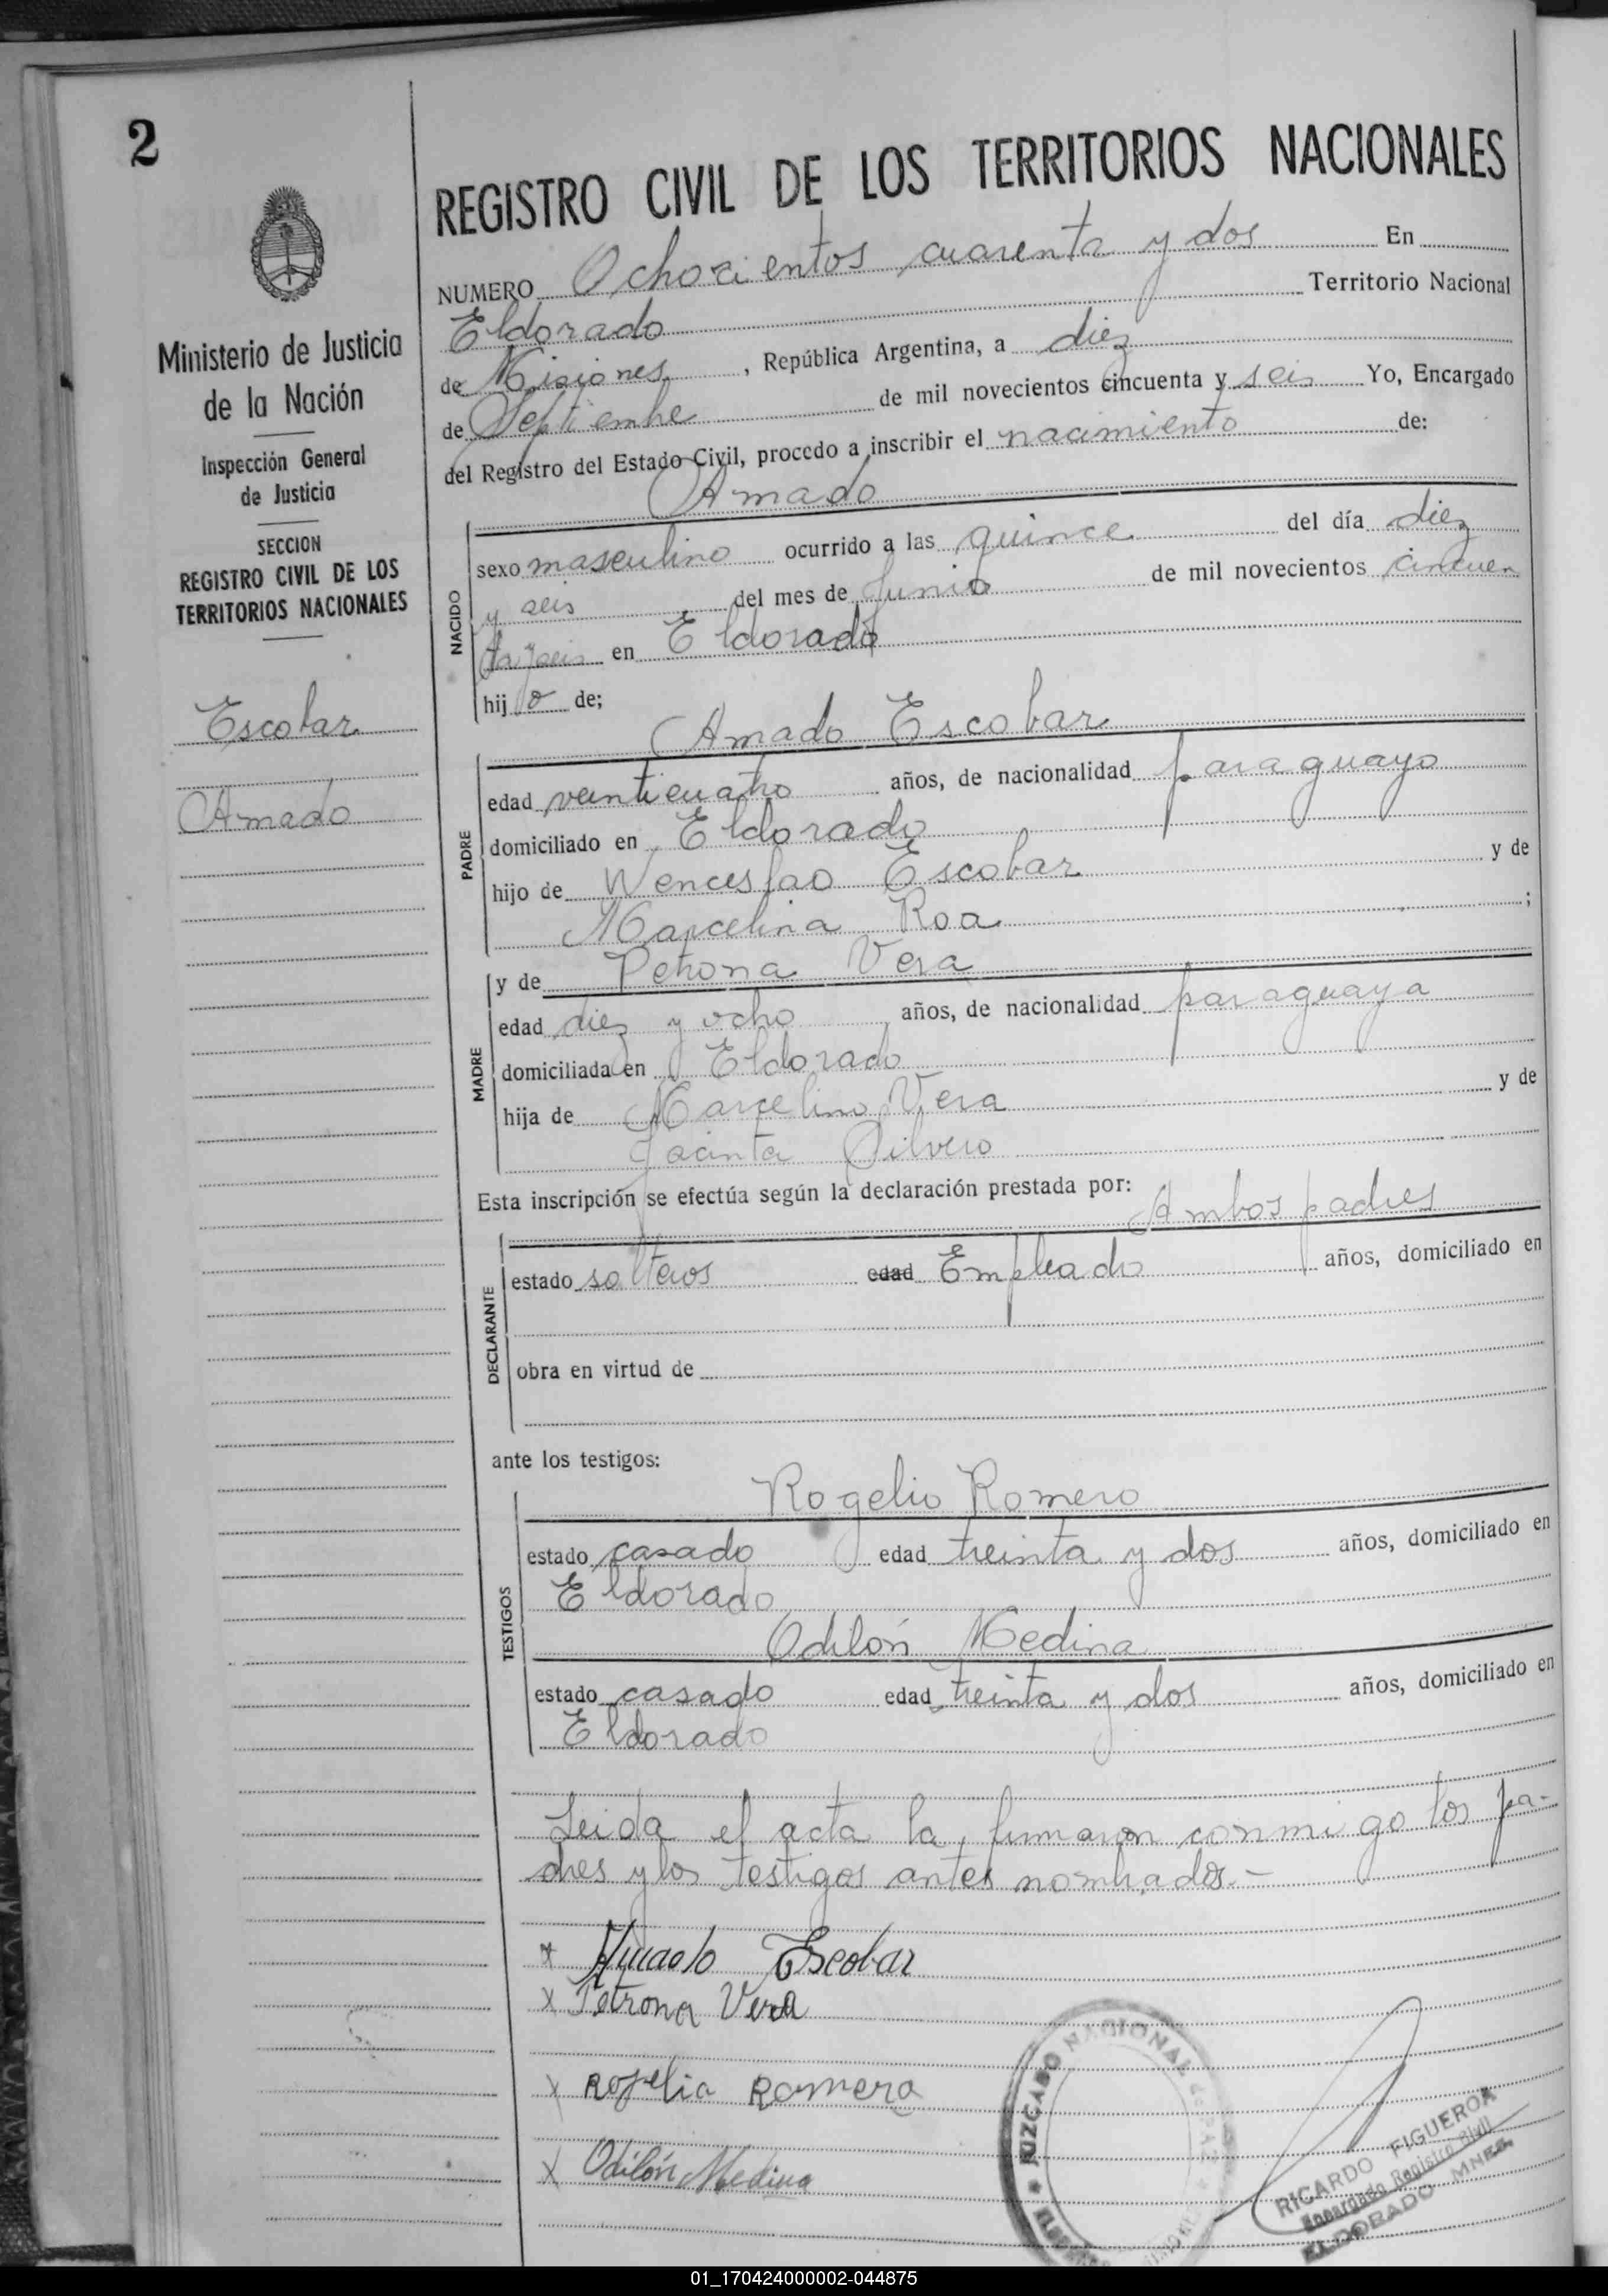 2
Ministerio de Justicia
de la Nación
Inspección General
de Justicia
SECCION
REGISTRO CIVIL DE LOS
TERRITORIOS NACIONALES
Escobar
Amado
REGISTRO CIVIL DE LOS TERRITORIOS NACIONALES
NUMERO Ochocientos cuarenta y dos En
Eldorado Territorio Nacional
de Misiones, República Argentina, a diez
de Septiembre de mil novecientos cincuenta y seis Yo, Encargado
del Registro del Estado Civil, procedo a inscribir el nacimiento de:
Amado
NACIDO
sexo masculino ocurrido a las quince del día diez
y seis del mes de Junio de mil novecientos cincuen
ta y seis en Eldorado
hijo de;
Amado Escobar
PADRE
edad veinticuatro años, de nacionalidad paraguayo
domiciliado en Eldorado
hijo de Wenceslao Escobar y de
Marcelina Roa ;
MADRE
y de Petrona Vera
edad diez y ocho años, de nacionalidad paraguaya
domiciliada en Eldorado
hija de Marcelino Vera y de
Jacinta Silvero
Esta inscripción se efectúa según la declaración prestada por:
Ambos padres
DECLARANTE
estado solteros edad Empleado años, domiciliado en
obra en virtud de
ante los testigos:
TESTIGOS
Rogelio Romero
estado casado edad treinta y dos años, domiciliado en
Eldorado
Odilón Medina
estado casado edad treinta y dos años, domiciliado en
Eldorado
Leida el acta la firmaron conmigo los pa-
dres y los testigos antes nombrados.-
x Amado Escobar
x Petrona Vera
x Rogelio Romero
x Odilón Medina
JUZGADO NACIONAL
RICARDO FIGUEROA
Encargado Registro Civil
ELDORADO MNES.
01_170424000002-044875